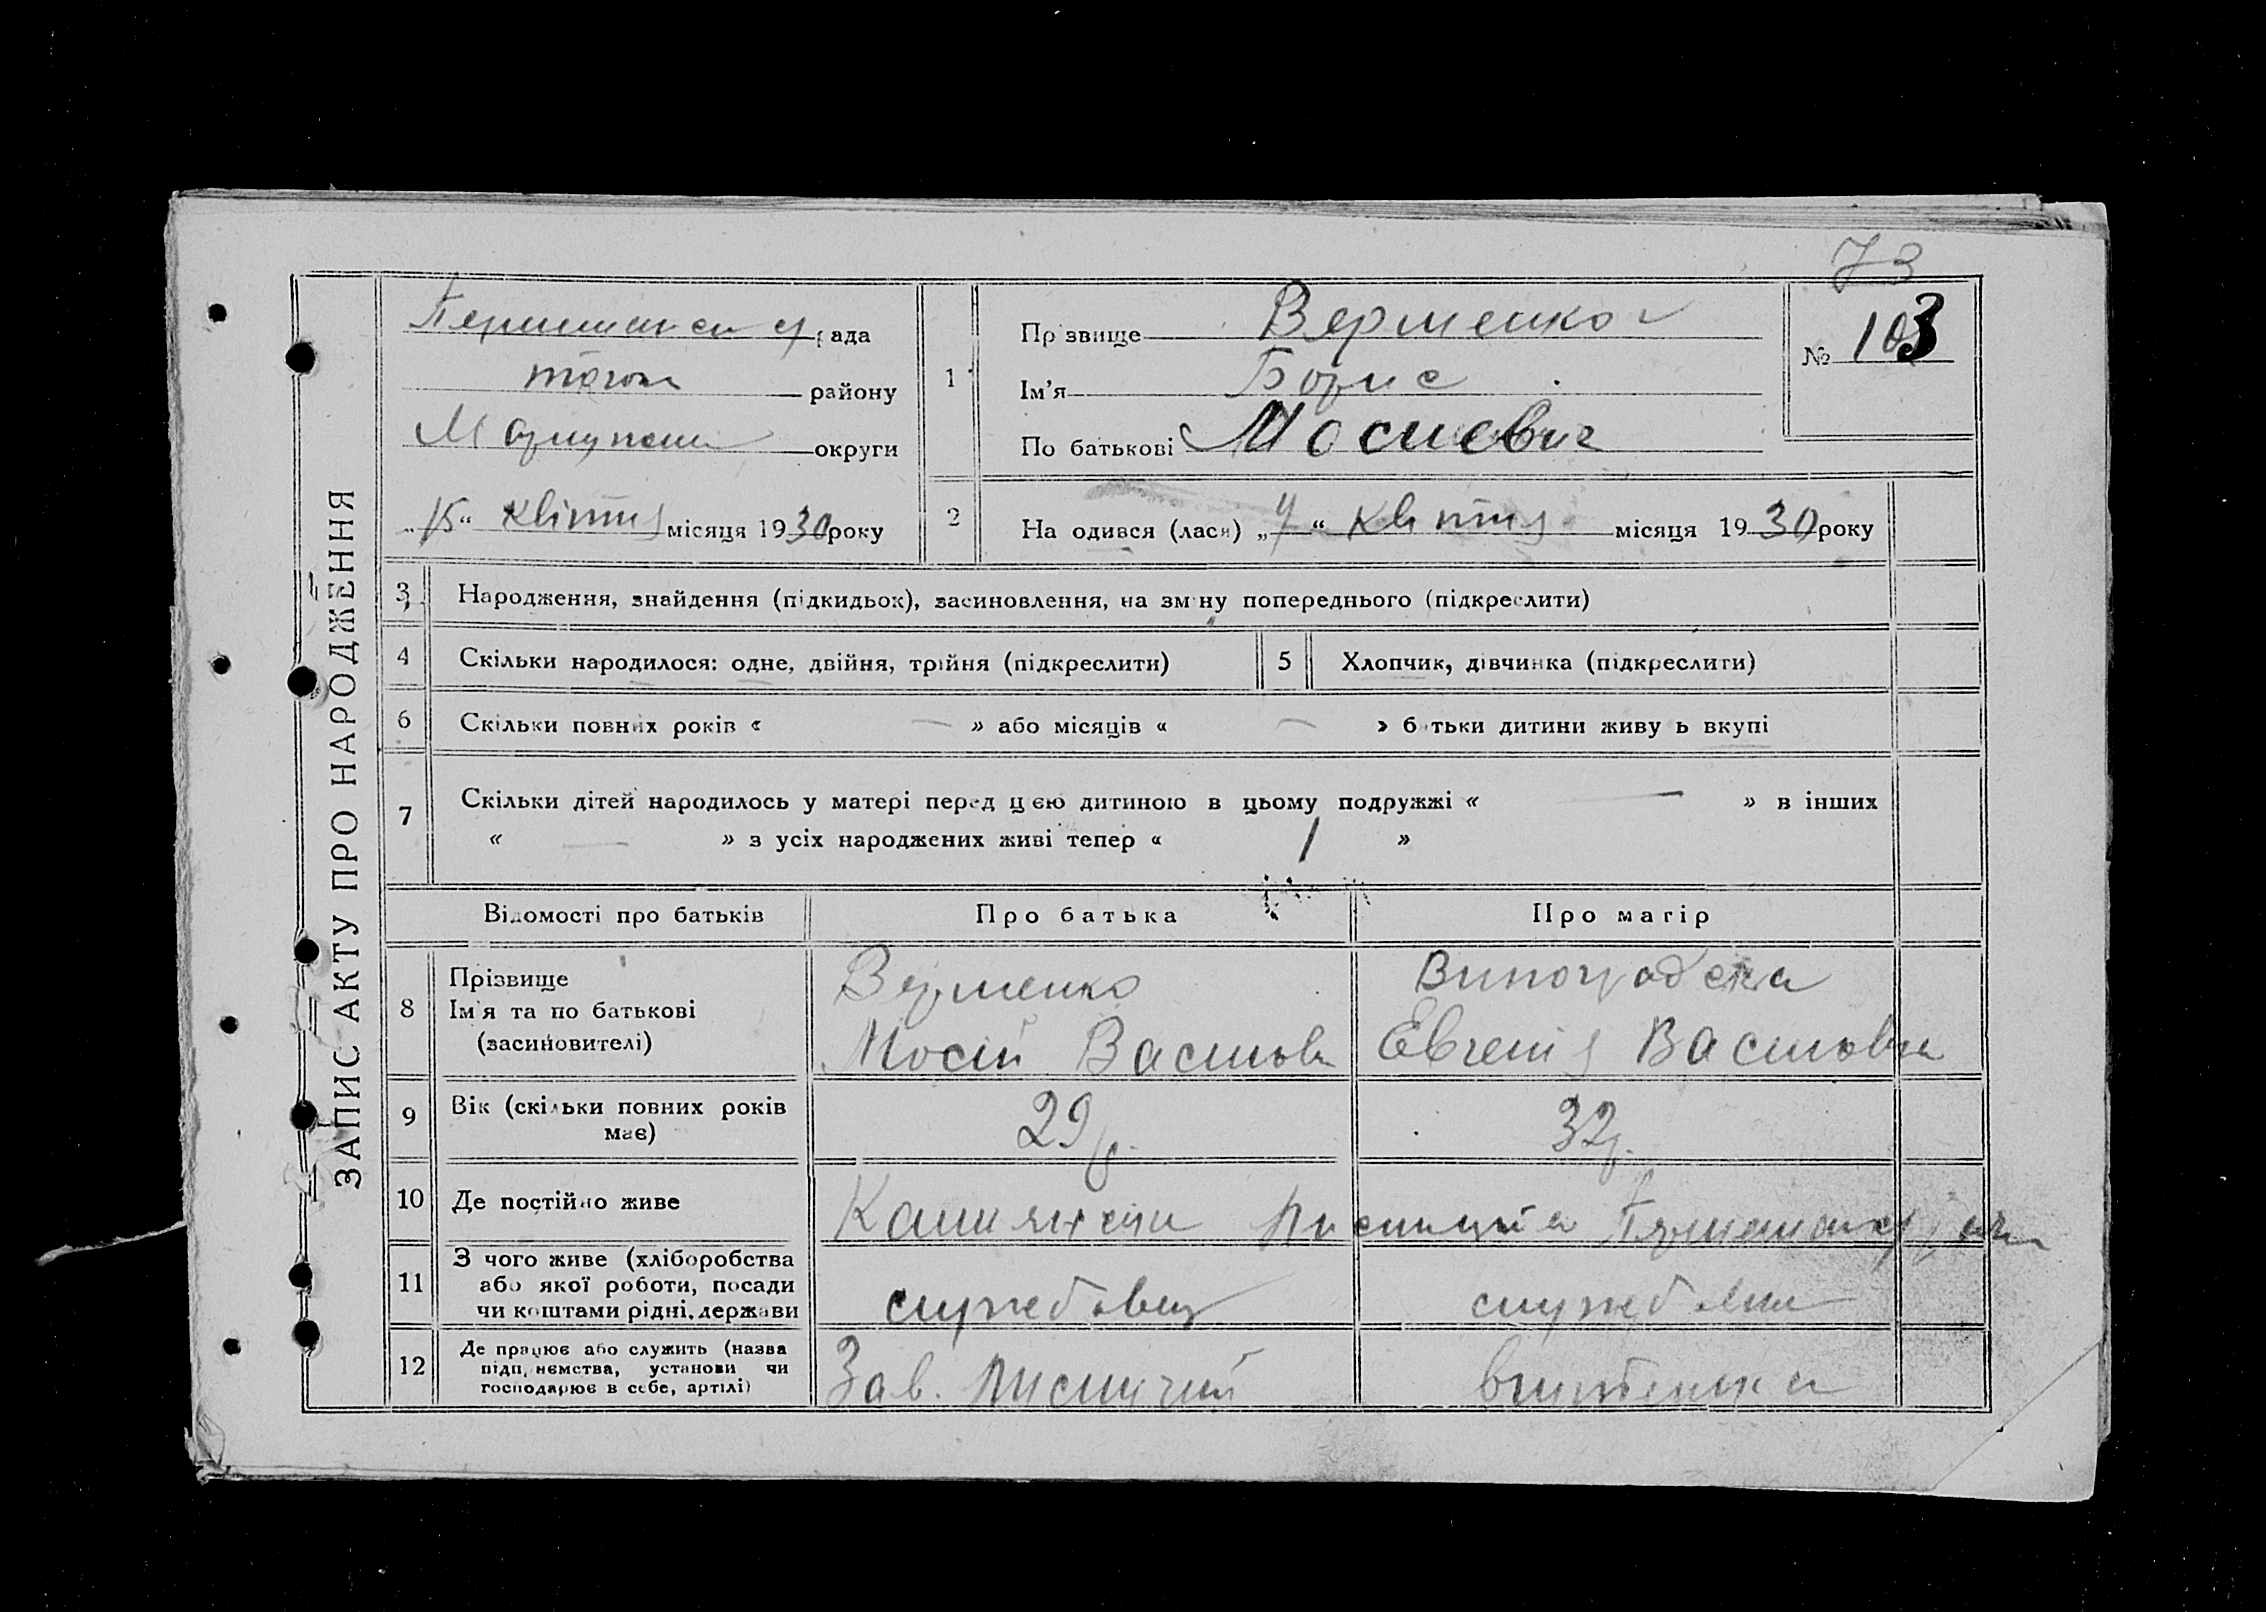 73
ЗАПИС АКТУ ПРО НАРОДЖЕННЯ
рада
району
округи
"15" квітня місяця 1930 року
1
Прізвище Верменко
Ім'я Борис
По батькові Мосиевич
№ 103
2
На одився (лася) "4" квітня місяця 1930 року
3 Народження, знайдення (підкидьок), засиновлення, на зміну попереднього (підкреслити)
4 Скільки народилося: одне, двійня, трійня (підкреслити)
5 Хлопчик, дівчинка (підкреслити)
6 Скільки повних років « — » або місяців « — » батьки дитини живуть вкупі
7 Скільки дітей народилось у матері перед цією дитиною в цьому подружжі « — » в інших
« — » з усіх народжених живі тепер « 1 »
Відомості про батьків Про батька Про матір
8 Прізвище
Ім'я та по батькові
(засиновителі)
Верменко
Мосій Васильов
Виноградська
Евгенія Васильовна
9 Вік (скільки повних років
має)
29 р.
32 р.
10 Де постійно живе
11 З чого живе (хліборобства
або якої роботи, посади
чи коштами рідні, держави
службовець
службовка
12 Де працює або служить (назва
підприємства, установи чи
господарює в себе, артілі)
Зав.
вчителька